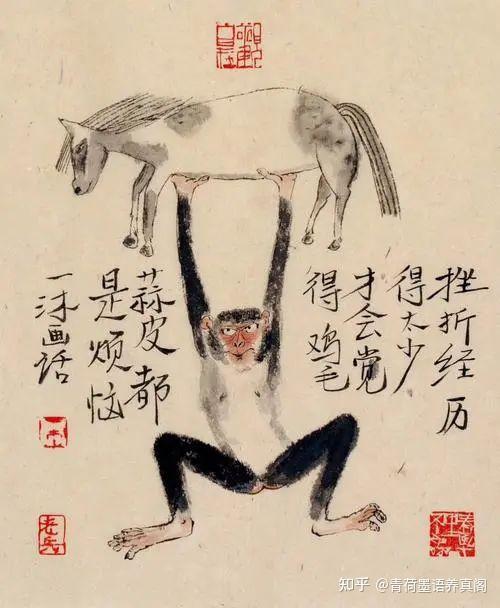 挫折经历
得太少
才会觉
得鸡毛
蒜皮都
是烦恼
一沐画话
知乎 @青荷墨语养真阁